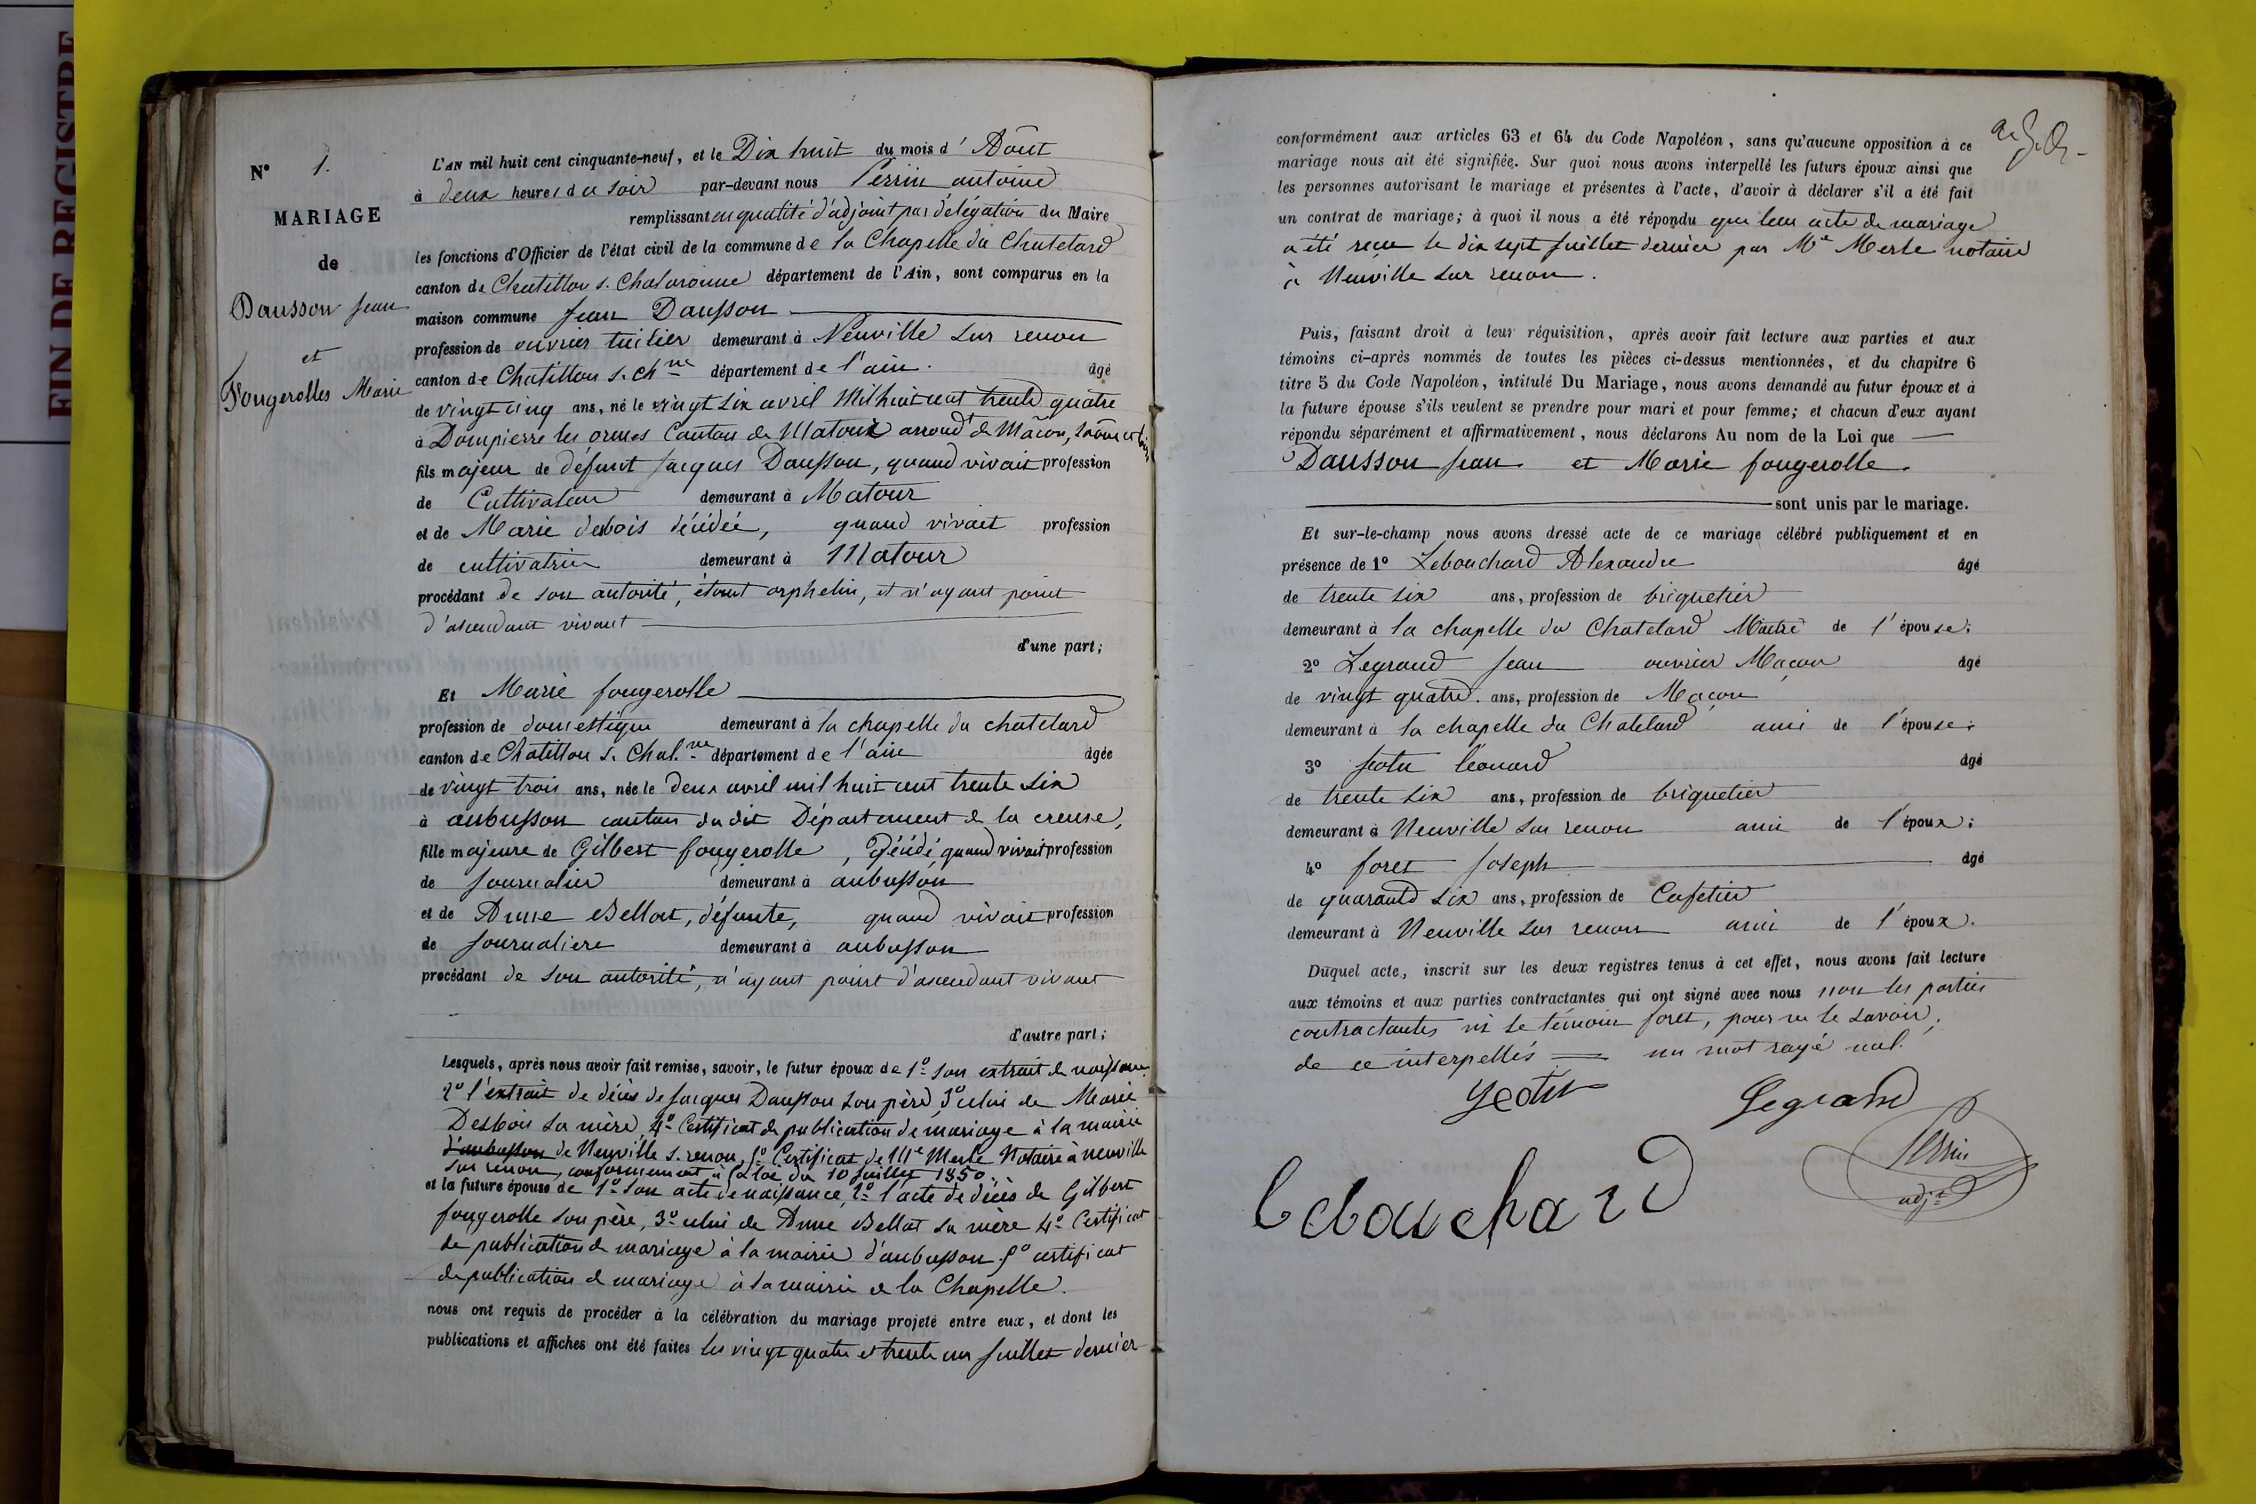 FIN DE REGISTRE
N° 1.
MARIAGE
de
Dausson Jean
et
Fougerolles Marie
L'AN mil huit cent cinquante-neuf, et le Dix huit du mois d'Aôut
à deux heures du soir par-devant nous Perrin antoine
remplissant en qualité d'adjoint par délégation du Maire
les fonctions d'Officier de l'état civil de la commune de la Chapelle du Chatelard
canton de Chatillon s. Chalaronne département de l'Ain, sont comparus en la
maison commune Jean Dausson
profession de ouvrier tuilier demeurant à Neuville sur renon
canton de Chatillon s. Chne département de l'ain. âgé
de vingt cinq ans, né le vingt six avril Mil huit cent trente quatre
à Dompierre les ormes Canton de Matour arrondt de Macon, Saône et
fils majeur de défunt Jacques Dausson, quand vivait profession
de Cultivateur demeurant à Matour
et de Marie debois décédée, quand vivait profession
de cultivatrice demeurant à Matour
procédant de son autorité, étant orphelin, et n'ayant point
d'ascendant vivant
d'une part;
Et Marie fougerolle
profession de domestique demeurant à la chapelle du chatelard
canton de Chatillon s. Chal.ne département de l'ain âgée
de vingt trois ans, née le deux avril mil huit cent trente six
à aubusson canton du dit Département de la creuse,
fille majeure de Gilbert fougerolle, décédé, quand vivait profession
de journalier demeurant à aubusson
et de Anne Bellat, défunte, quand vivait profession
de journaliere demeurant à aubusson
procédant de son autorité, n'ayant point d'ascendant vivant
d'autre part;
Lesquels, après nous avoir fait remise, savoir, le futur époux de 1° son extrait de naissance
2° l'extrait de décès de Jacques Dausson son père, 3° celui de Marie
Desbois sa mère, 4° Certificat de publication de mariage à la mairie
d'aubusson de Neuville s. renon, 5° Certificat de Me Merle Notaire à neuville
sur renon, conformement à la loi du 10 juillet 1850.
et la future épouse de 1° son acte de naissance, 2° l'acte de décès de Gilbert
fougerolle son père, 3° celui de Anne Bellat sa mère 4° Certificat
de publication de mariage à la mairie d'aubusson 5° certificat
de publication de mariage à la mairie de la Chapelle.
nous ont requis de procéder à la célébration du mariage projeté entre eux, et dont les
publications et affiches ont été faites les vingt quatre et trente un juillet dernier
conformément aux articles 63 et 64 du Code Napoléon, sans qu'aucune opposition à ce
mariage nous ait été signifiée. Sur quoi nous avons interpellé les futurs époux ainsi que
les personnes autorisant le mariage et présentes à l'acte, d'avoir à déclarer s'il a été fait
un contrat de mariage; à quoi il nous a été répondu que leur acte de mariage
a été reçu le dix sept juillet dernier par Me Merle notaire
à Neuville sur renon.
Puis, faisant droit à leur réquisition, après avoir fait lecture aux parties et aux
témoins ci-après nommés de toutes les pièces ci-dessus mentionnées, et du chapitre 6
titre 5 du Code Napoléon, intitulé Du Mariage, nous avons demandé au futur époux et à
la future épouse s'ils veulent se prendre pour mari et pour femme; et chacun d'eux ayant
répondu séparément et affirmativement, nous déclarons Au nom de la Loi que
Dausson Jean et Marie fougerolle.
sont unis par le mariage.
Et sur-le-champ nous avons dressé acte de ce mariage célébré publiquement et en
présence de 1° Lebouchard Alexandre âgé
de trente six ans, profession de briquetier
demeurant à la chapelle du Chatelard Maitre de l'épouse;
2° Legrand Jean ouvrier Maçon âgé
de vingt quatre ans, profession de Maçon
demeurant à la chapelle du Chatelard ami de l'épouse;
3° léonard âgé
de trente six ans, profession de briquetier
demeurant à Neuville sur renon ami de l'époux;
4° foret Joseph âgé
de quarante six ans, profession de Cafetier
demeurant à Neuville sur renon ami de l'époux.
Duquel acte, inscrit sur les deux registres tenus à cet effet, nous avons fait lecture
aux témoins et aux parties contractantes qui ont signé avec nous non les parties
contractantes ni le témoin foret, pour ne le savoir,
de ce interpellés un mot rayé nul.
Legrand
Perrin
adjt
lebouchard